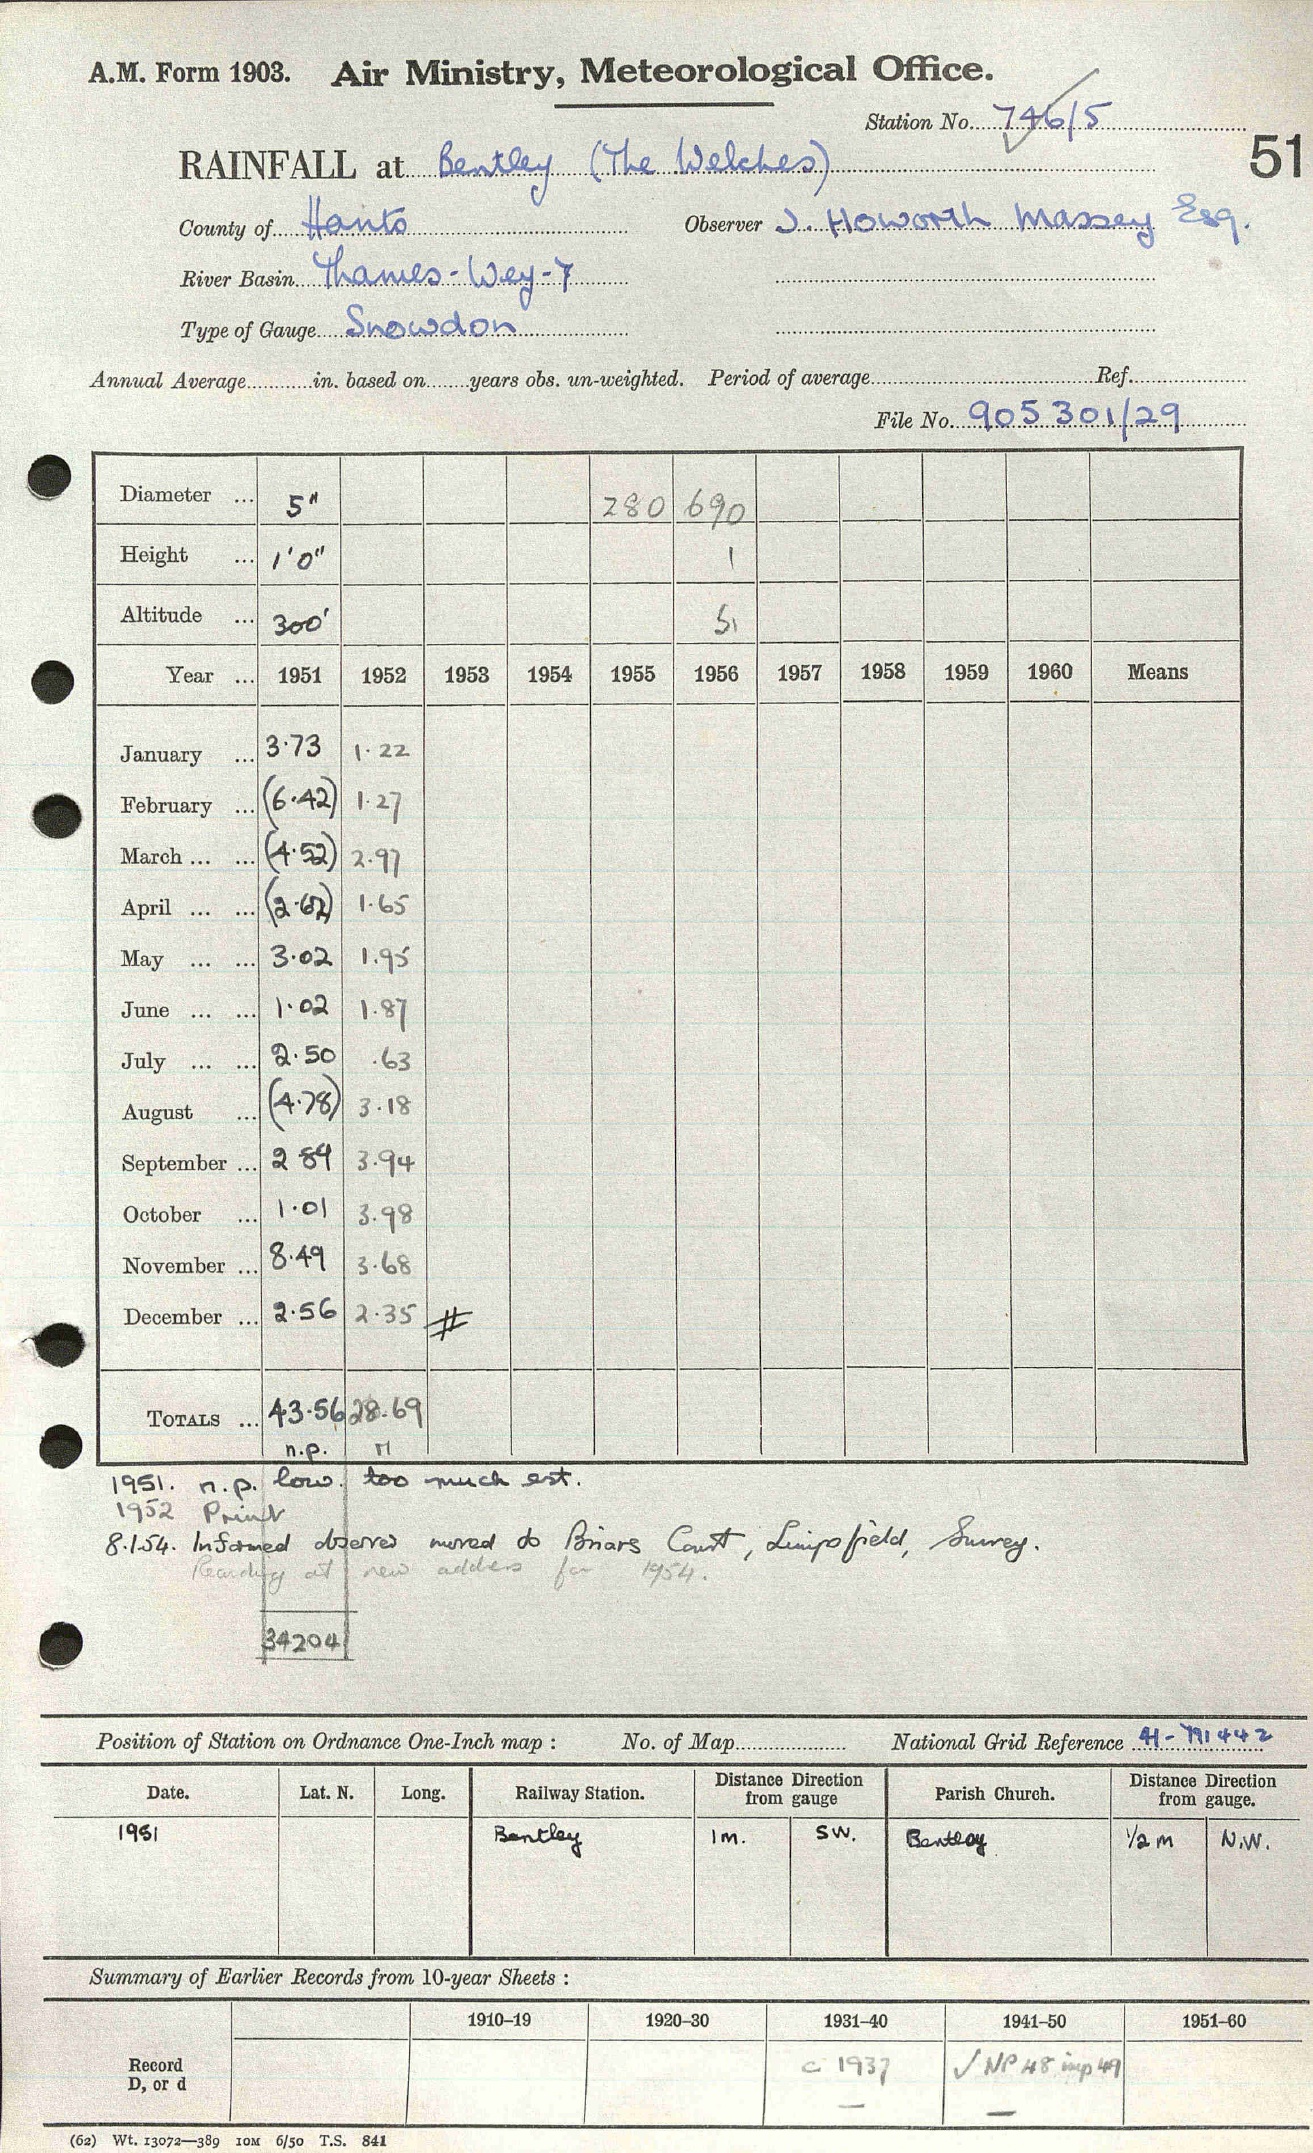 A.M. Form 1903. Air Ministry, Meteorological Office.
Station No. 746/5
RAINFALL at Bentley (The Welches)
51
County of Hants Observer J. Howorth Massey Esq.
River Basin Thames-Wey-7
Type of Gauge Snowdon
Annual Average in. based on years obs. un-weighted. Period of average Ref.
File No. 905301/29
Diameter ... 5" 280 690
Height ... 1'0" 1
Altitude ... 300' 51
Year ... 1951 1952 1953 1954 1955 1956 1957 1958 1959 1960 Means
January ... 3.73 1.22
February ... (6.42) 1.27
March ... ... (4.52) 2.97
April ... ... (2.67) 1.65
May ... ... 3.02 1.95
June ... ... 1.02 1.87
July ... ... 2.50 .63
August ... (4.78) 3.18
September ... 2 84 3.94
October ... 1.01 3.98
November ... 8.49 3.68
December ... 2.56 2.35 #
TOTALS ... 43.56 28.69
n.p.
1951. n.p. low. too much est.
1952 Print
8.1.54. Informed observer moved to Briars Court, Limpsfield, Surrey.
Reading at new address for 1954.
34204
Position of Station on Ordnance One-Inch map : No. of Map National Grid Reference 41-791442
Date. Lat. N. Long. Railway Station. Distance Direction from gauge Parish Church. Distance Direction from gauge.
1951 Bentley 1m. SW. Bentley 1/2 m N.W.
Summary of Earlier Records from 10-year Sheets :
1910–19 1920–30 1931–40 1941–50 1951–60
Record D, or d c 1937 ✓ NP 48 inp 49
— —
(62) Wt. 13072—389 10M 6/50 T.S. 841